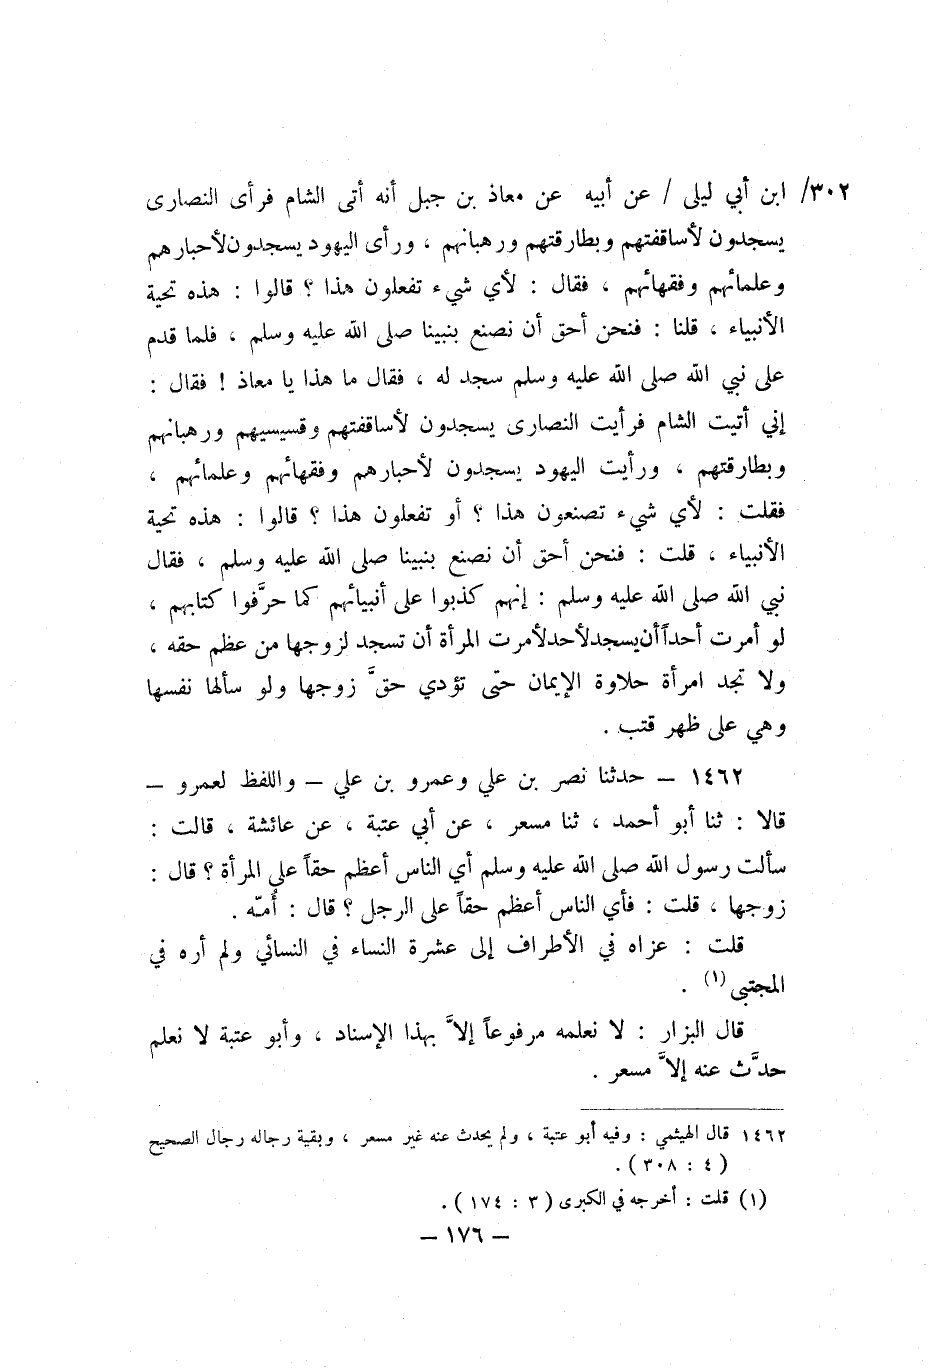 ٣٠٢/ ابن أبي ليلى / عن أبيه عن معاذ بن جبل أنه أتى الشام فرأى النصارى
يسجدون لأساقفتهم وبطارقتهم ورهبانهم ، ورأى اليهود يسجدون لأحبارهم
وعلمائهم وفقهائهم ، فقال : لأي شيء تفعلون هذا ؟ قالوا : هذه تحية
الأنبياء ، قلنا : فنحن أحق أن نصنع بنبينا صلى الله عليه وسلم ، فلما قدم
على نبي الله صلى الله عليه وسلم سجد له ، فقال ما هذا يا معاذ ! فقال :
إني أتيت الشام فرأيت النصارى يسجدون لأساقفتهم وقسيسيهم ورهبانهم
وبطارقتهم ، ورأيت اليهود يسجدون لأحبارهم وفقهائهم وعلمائهم ،
فقلت : لأي شيء تصنعون هذا ؟ أو تفعلون هذا ؟ قالوا : هذه تحية
الأنبياء ، قلت : فنحن أحق أن نصنع بنبينا صلى الله عليه وسلم ، فقال
نبي الله صلى الله عليه وسلم : إنهم كذبوا على أنبيائهم كما حرَّفوا كتابهم ،
لو أمرت أحداً أن يسجد لأحد لأمرت المرأة أن تسجد لزوجها من عظم حقه ،
ولا تجد امرأة حلاوة الإيمان حتى تؤدي حقَّ زوجها ولو سألها نفسها
وهي على ظهر قتب .
١٤٦٢ – حدثنا نصر بن علي وعمرو بن علي – واللفظ لعمرو –
قالا : ثنا أبو أحمد ، ثنا مسعر ، عن أبي عتبة ، عن عائشة ، قالت :
سألت رسول الله صلى الله عليه وسلم أي الناس أعظم حقاً على المرأة ؟ قال :
زوجها ، قلت : فأي الناس أعظم حقاً على الرجل ؟ قال : أُمّه .
قلت : عزاه في الأطراف إلى عشرة النساء في النسائي ولم أره في
المجتبى (١) .
قال البزار : لا نعلمه مرفوعاً إلاَّ بهذا الإسناد ، وأبو عتبة لا نعلم
حدَّث عنه إلاَّ مسعر .
١٤٦٢ قال الهيثمي : وفيه أبو عتبة ، ولم يحدث عنه غير مسعر ، وبقية رجاله رجال الصحيح
( ٤ : ٣٠٨ ) .
(١) قلت : أخرجه في الكبرى ( ٣ : ١٧٤ ) .
– ١٧٦ –